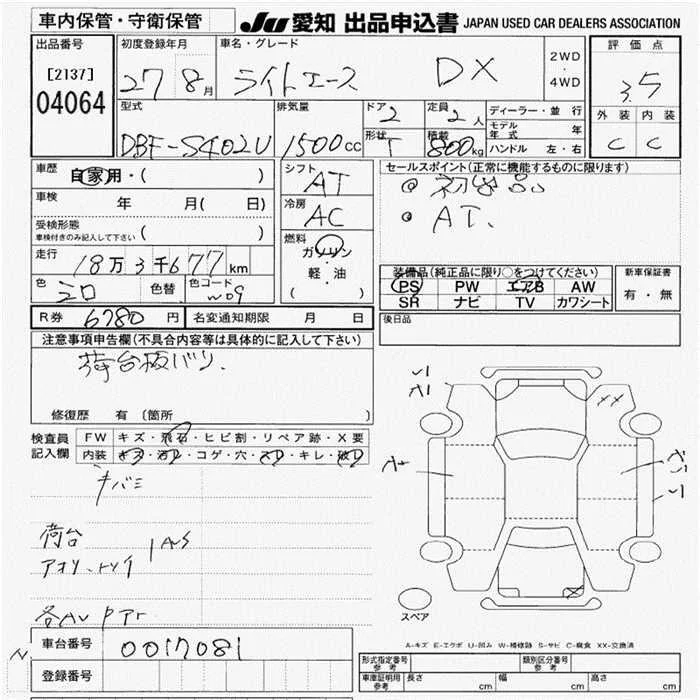 車内保管・守衛保管
JU 愛知 出品申込書 JAPAN USED CAR DEALERS ASSOCIATION
出品番号 初度登録年月 車名・グレード 2WD ・ 4WD 評価点
[2137]
04064
27 8月 ライトエース DX 3.5
外装 内装
C C
型式 排気量 ドア 2 定員 2人 ディーラー・並行
DBF-S402U 1500cc 形状 T 積載 800kg
モデル年式 年
ハンドル 左・右
車歴 自家用・( )
シフト AT
セールスポイント(正常に機能するものに限ります)
AT、
車検 年 月( 日)
冷房 AC
受検形態
車検付きのみ記入して下さい ( )
燃料 ガソリン
軽・油
( )
走行 18万3千677km
色 シロ 色替 色コード W09
装備品(純正品に限り○をつけてください) 新車保証書
PS PW エアB AW 有・無
SR ナビ TV カワシート
R券 6780円 名変通知期限 月 日
後日品
注意事項申告欄(不具合内容等は具体的に記入して下さい)
荷台板バリ、
修復歴 有(箇所 )
検査員 FW キズ・飛石・ヒビ割・リペア跡・X要
記入欄 内装 キズ・汚レ・コゲ・穴・スレ・キレ・破レ
キバミ
荷台
各AU
A1
A
XX
X
スペア
A-キズ E-エクボ U-凹み W-補修跡 S-サビ C-腐食 XX-交換済
車台番号 0017081
登録番号
形式指定番号 参考 類別区分番号 参考
車庫証明用 参考 長さ cm 幅 cm 高さ cm